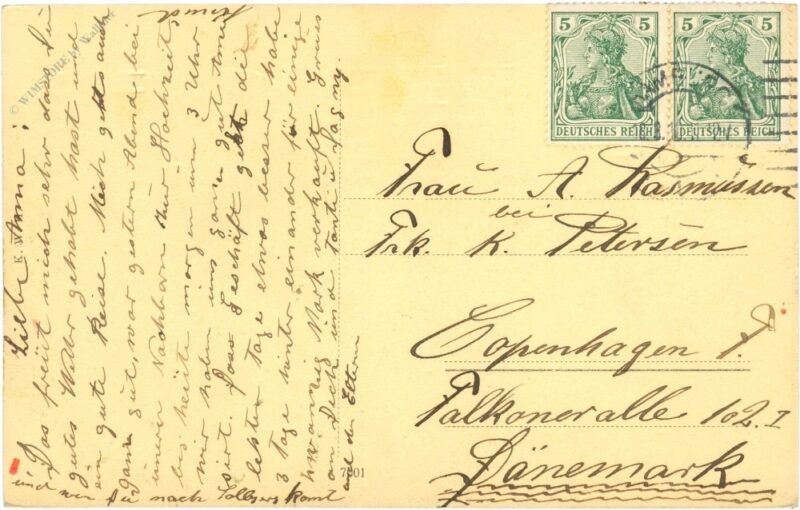 Liebe Anna!
Das freut mich sehr das Du
gutes Wetter gehabt hast und
ein gute Reise. Mich gehts auch
ganz gut, war gestern Abend bei
unern Nachbarn zur Hochzeit
bis heute morgen um 3 Uhr
wir haben uns ganz gut amü
sirt. Das Geschäft geht die
letzten Tage etwas besser habe
3 Tage hinter einander für einige
zwanzig Mark verkauft. Gruss
an Dich und Tante u
und den Eltern
und wen Du nach komt
© WIMSTORE by Walther
7901
5 5
DEUTSCHES REICH
5 5
DEUTSCHES REICH
Frau A. Rasmussen
bei
Frk. K. Petersen
Copenhagen F.
Falkoneralle 102 I
Dänemark